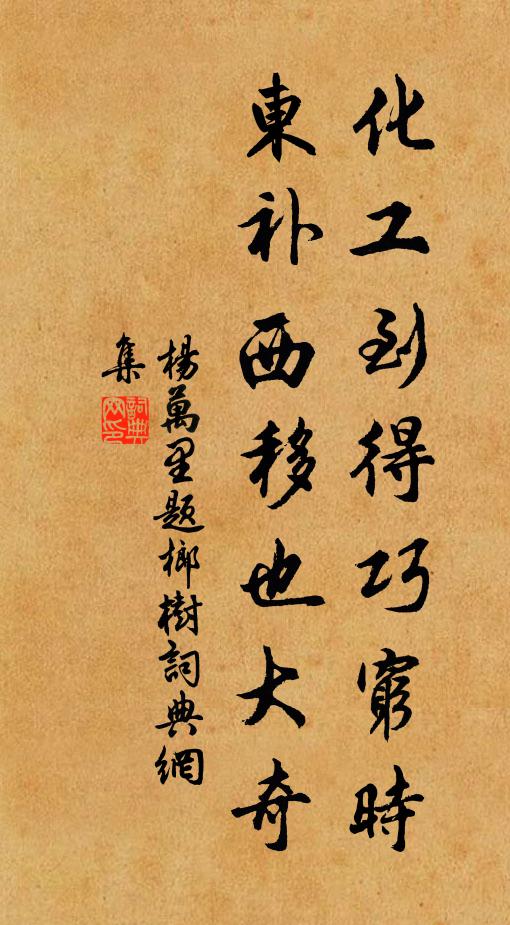 化工到得巧窮時
東补西移也大奇
楊萬里题榔樹詞典網
集
詞典网印